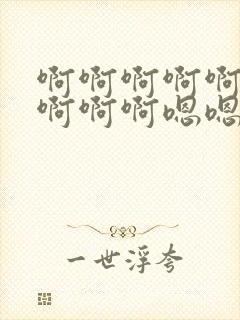 啊啊啊啊啊
啊啊啊嗯嗯
一世浮夸